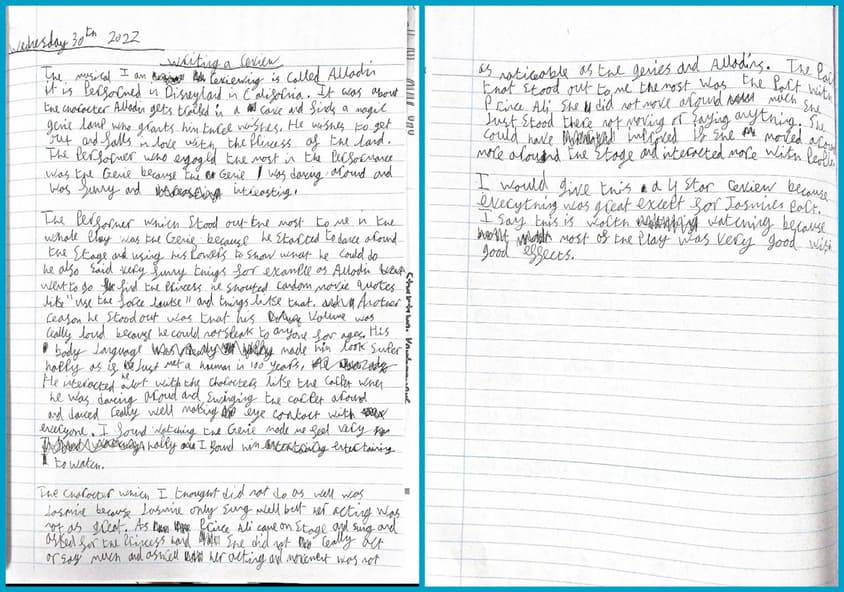 Wednesday 30th 2022
Writing a review
The musical I am reviewing is called Alladin
it is Performed in Disneyland in California. It was about
the character Alladin gets traled in a cave and finds a magic
genie lamp who grants him three wishes. He wishes to get
out and falls in love with the Princess of the land.
The Performer who engaged the most in the Performance
was the Genie because the Genie was dancing around and
was funny and interesting.
The Performer which stood out the most to me in the
whole Play was the Genie because he started to dance around
the stage and using his Powers to show what he could do
he also said very funny things for example as Alladin
went to go find the Princess he shouted random movie quotes
like "use the force" and things like that. Another
reason he stood out was that his Volume was
really loud because he could not speak to anyone for ages. His
body language made him look super
happy as if he Just met a human in 100 years.
He interacted alot with the characters like the carpet when
he was dancing around and swinging the carpet around
and danced really well making eye contact with
everyone. I found watching the Genie made me feel very
happy and I found him entertaining
to watch.
The character which I thought did not do as well was
Jasmine because Jasmine only sung well but her acting was
not as great. As Prince Ali came on stage and sung and
asked for the Princess hand she did not really act
or say much and aswell her acting and movement was not
as noticeable as the genies and Alladins. The Part
that stood out to me the most was the Part with
Prince Ali She did not move around much she
Just stood there not moving or saying anything. She
could have improved if she moved around
more around the stage and interacted more with People
I would give this a 4 star review because
everything was great except for Jasmines Part.
I say this is worth watching because
most of the Play was very good with
good effects.